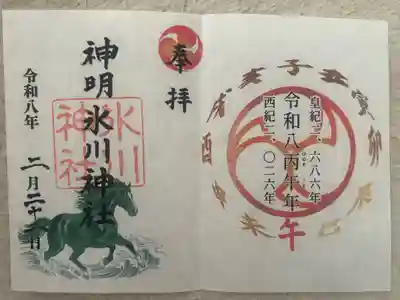 子丑寅卯辰巳午未申酉戌亥
皇紀二、六八六年
令和八丙午年
西紀二、〇二六年
奉拝
神明氷川神社
氷川
神社
令和八年 二月二十日